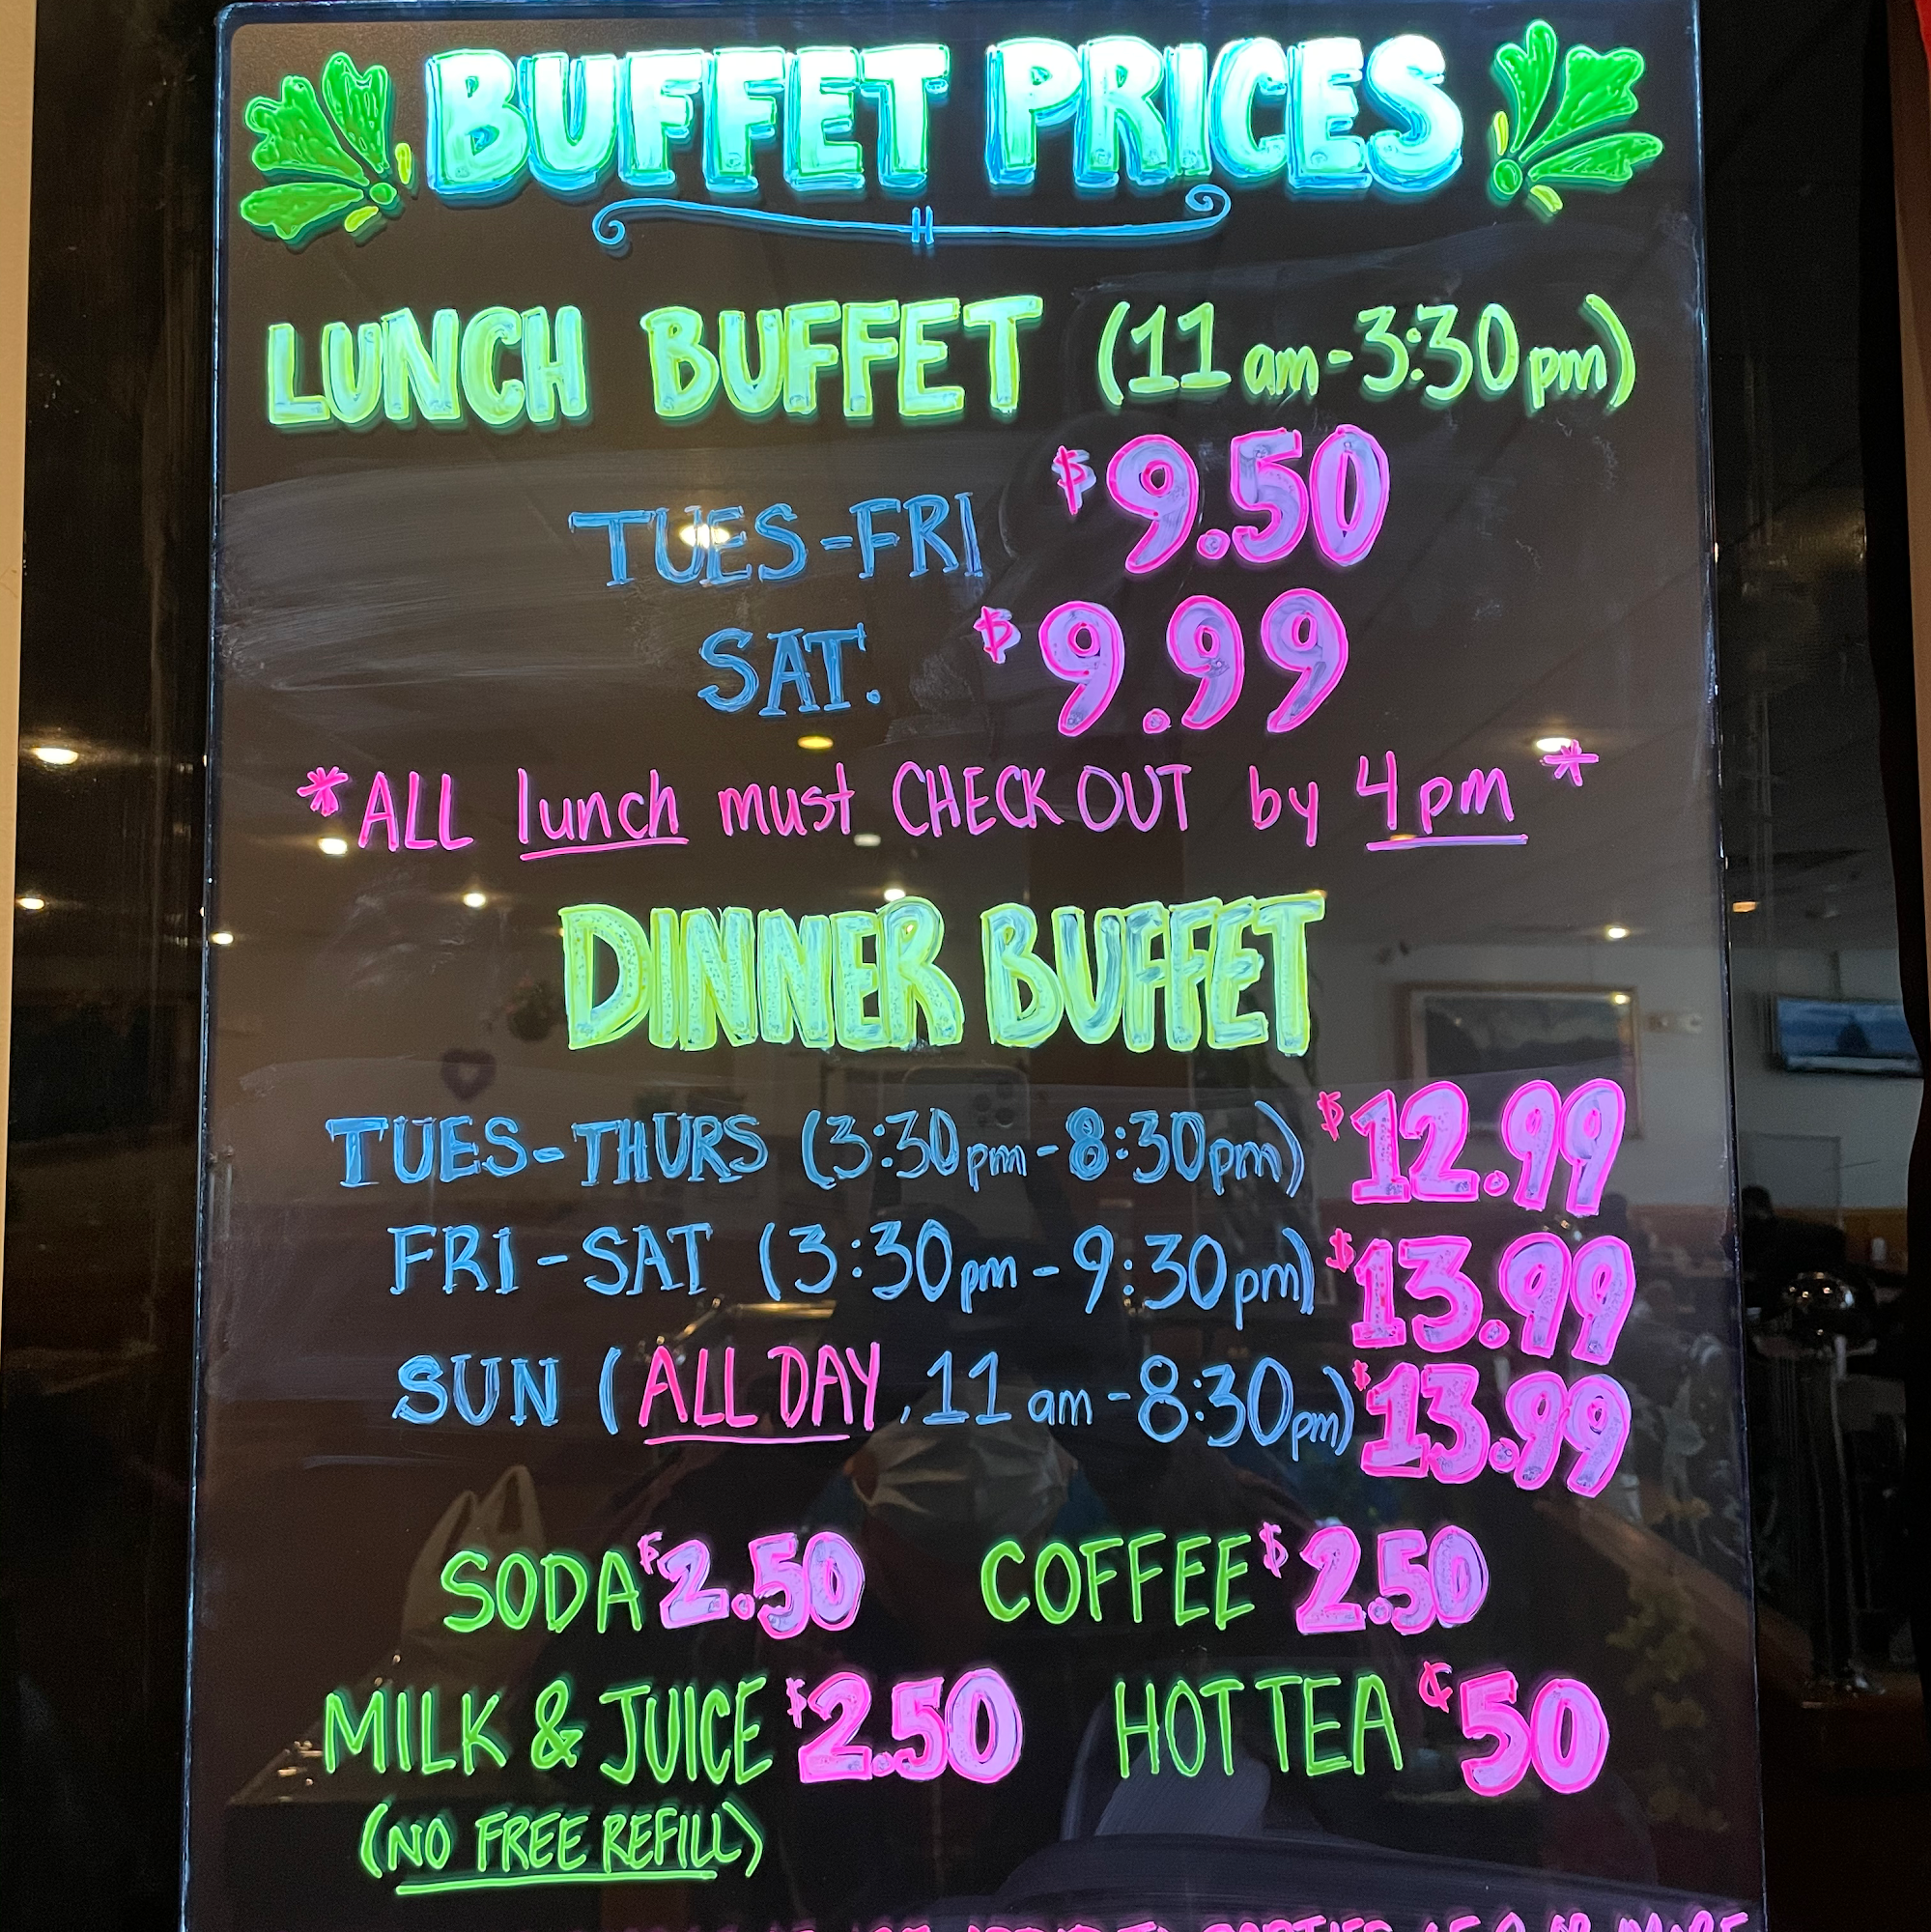 BUFFET PRICES
LUNCH BUFFET (11 am-3:30 pm)
TUES-FRI $9.50
SAT. $9.99
*ALL lunch must CHECK OUT by 4pm*
DINNER BUFFET
TUES-THURS (3:30pm-8:30pm) $12.99
FRI-SAT (3:30pm-9:30pm) $13.99
SUN (ALL DAY, 11 am-8:30pm) $13.99
SODA $2.50 COFFEE $2.50
MILK & JUICE $2.50 HOT TEA ¢50
(NO FREE REFILL)